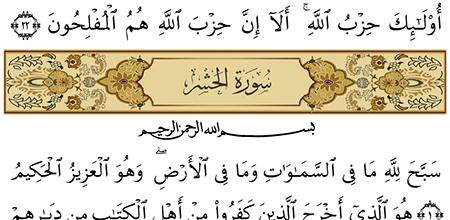 أُوْلَـٰٓئِكَ حِزْبُ ٱللَّهِ ۚ أَلَآ إِنَّ حِزْبَ ٱللَّهِ هُمُ ٱلْمُفْلِحُونَ ﴿٢٢﴾
سُورَةُ الحَشْرِ
بسم الله الرحمن الرحيم
سَبَّحَ لِلَّهِ مَا فِى ٱلسَّمَـٰوَٰتِ وَمَا فِى ٱلْأَرْضِ ۖ وَهُوَ ٱلْعَزِيزُ ٱلْحَكِيمُ
﴿١﴾ هُوَ ٱلَّذِىٓ أَخْرَجَ ٱلَّذِينَ كَفَرُوا۟ مِنْ أَهْلِ ٱلْكِتَـٰبِ مِن دِيَـٰرِهِمْ